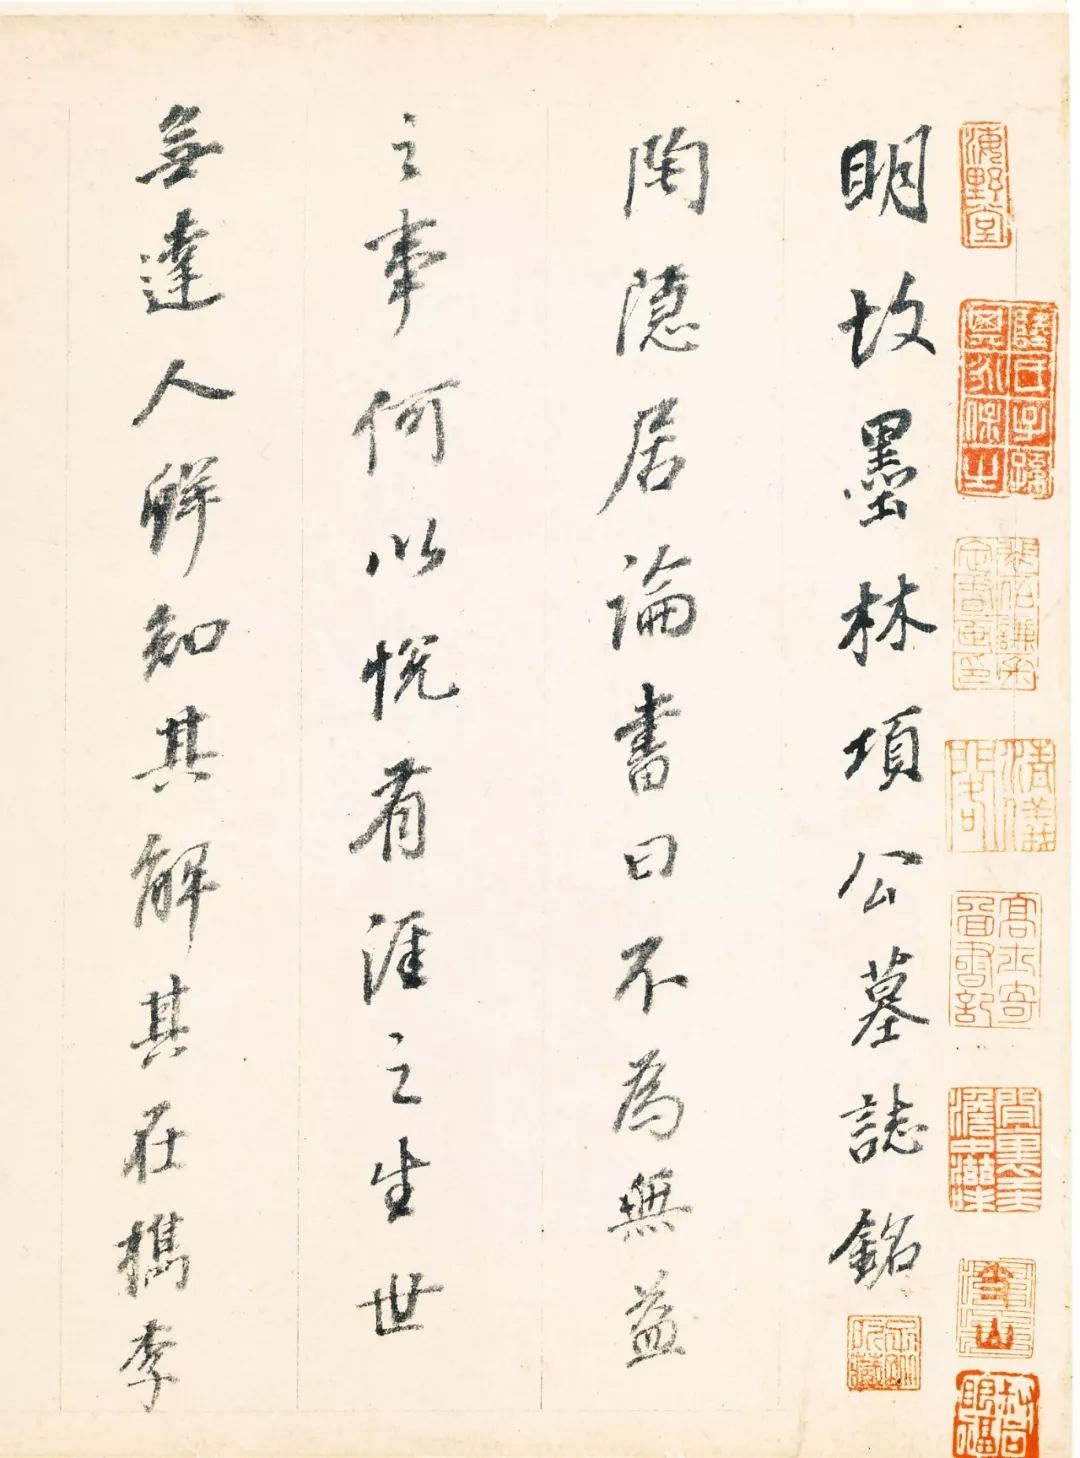 明故墨林項公墓誌銘
陶隱居論書曰不為無益
之事何以悅有涯之生世
無達人鮮知其解其在檇李
海野堂